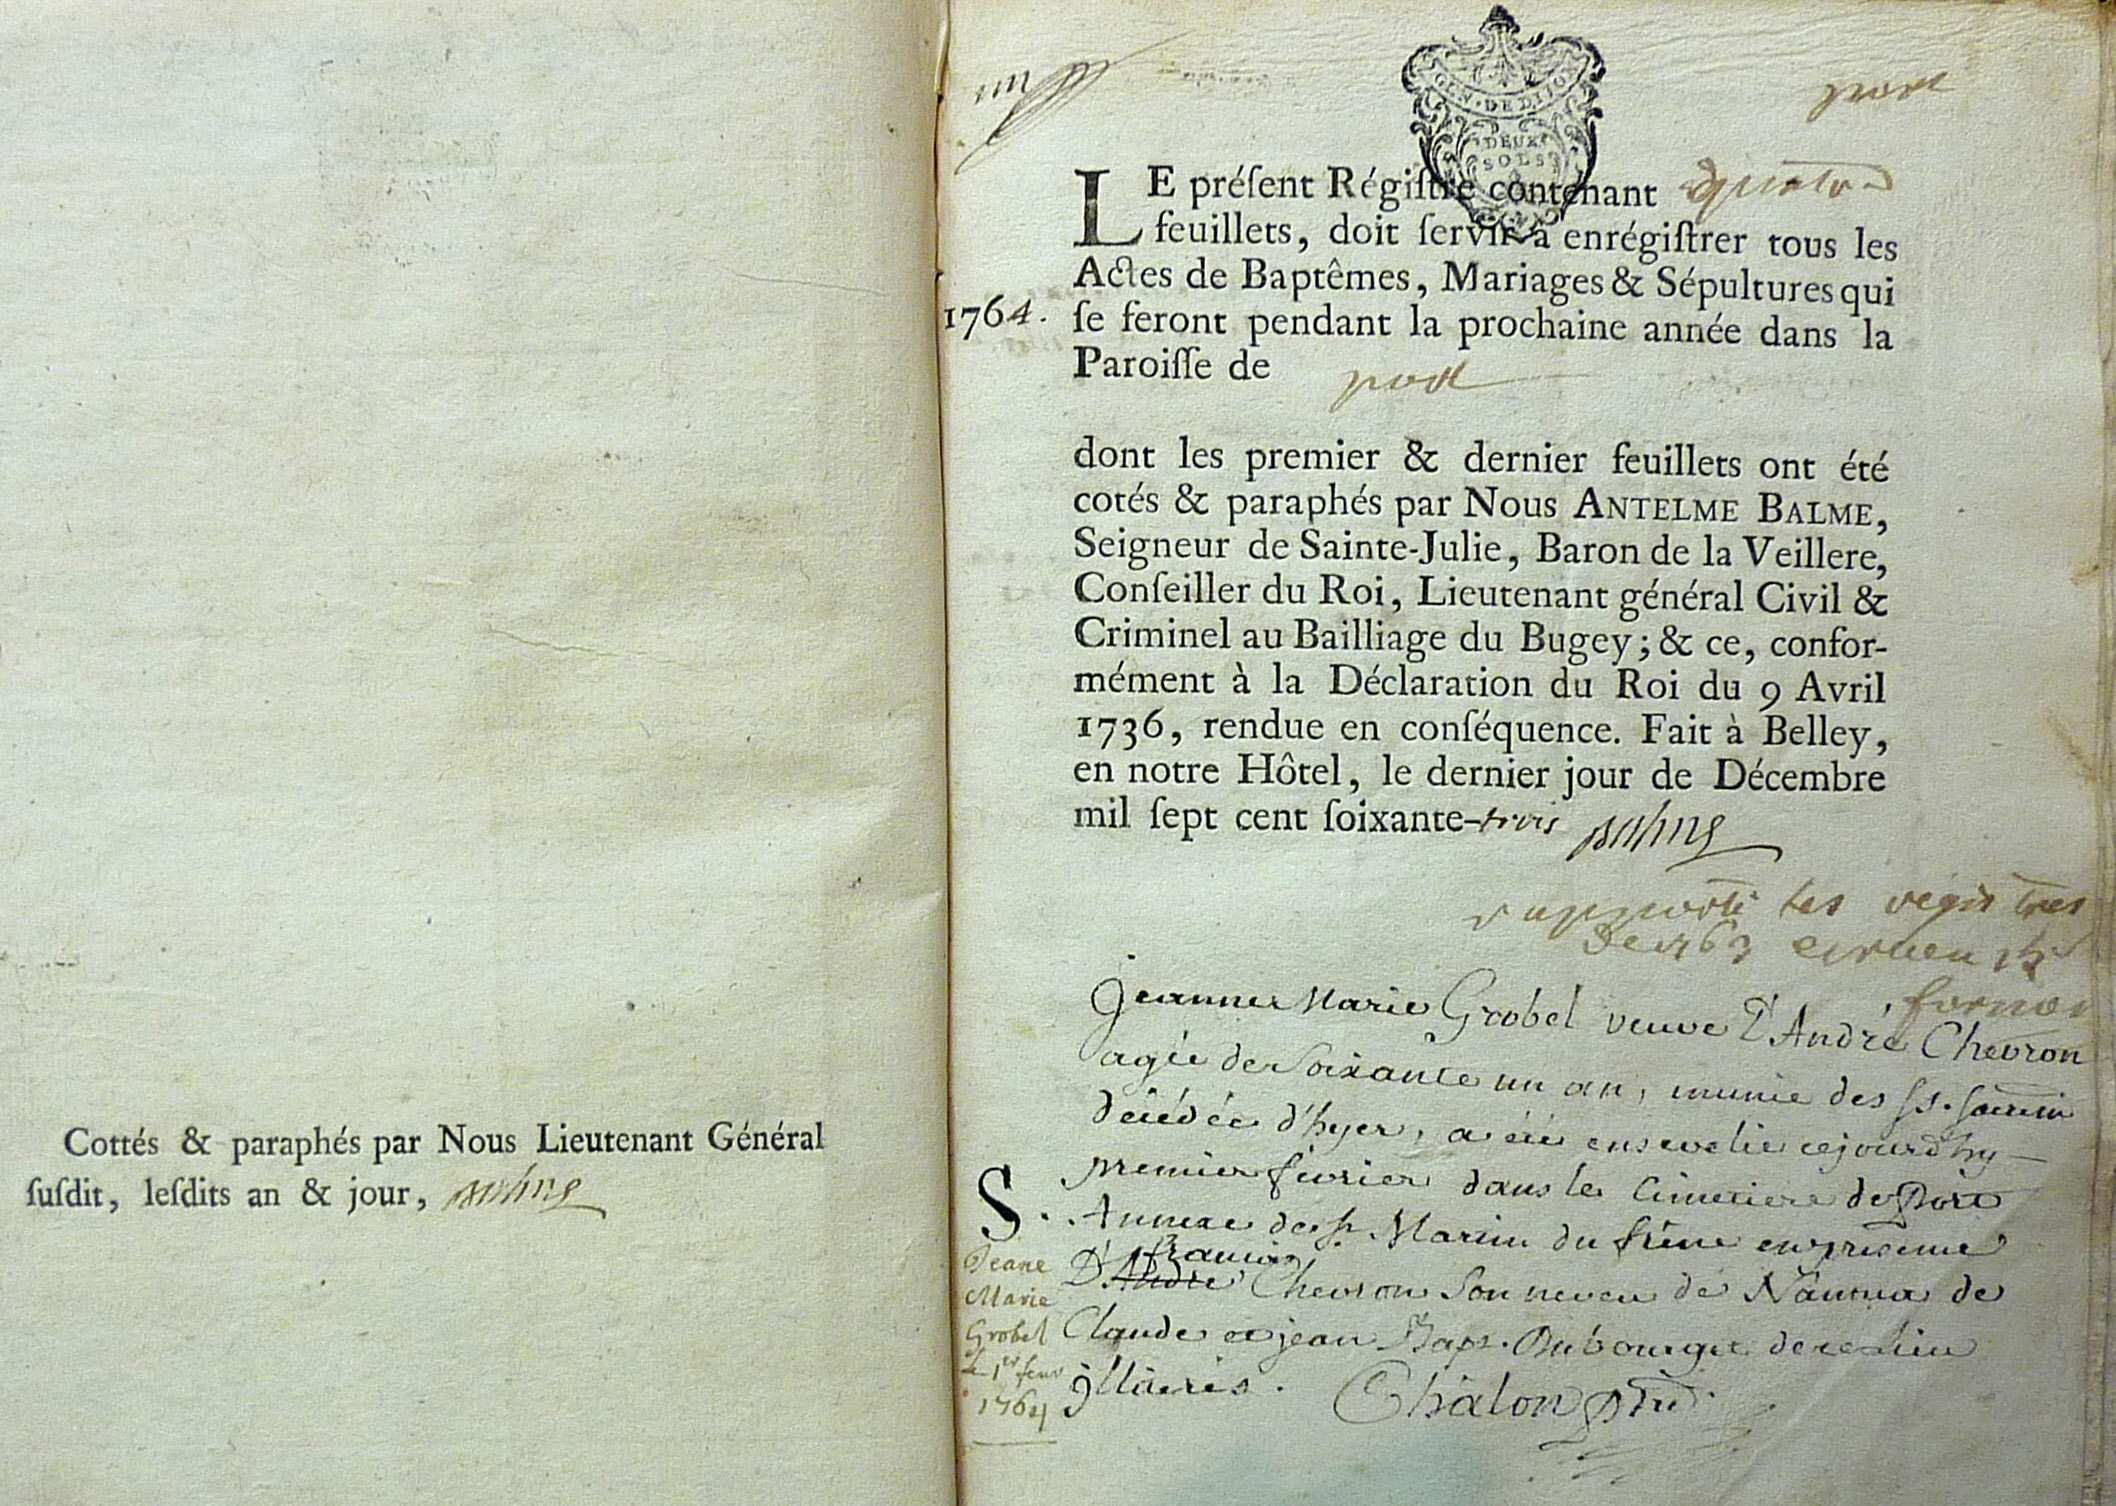 Cottés & paraphés par Nous Lieutenant Général
ſuſdit, leſdits an & jour, Balme
GEN. DE DIJON
DEUX
SOLS
port
LE préſent Régiſtre contenant quatre
feuillets, doit ſervir à enrégiſtrer tous les
Actes de Baptêmes, Mariages & Sépultures qui
1764. ſe feront pendant la prochaine année dans la
Paroiſſe de port
dont les premier & dernier feuillets ont été
cotés & paraphés par Nous ANTELME BALME,
Seigneur de Sainte-Julie, Baron de la Veillere,
Conſeiller du Roi, Lieutenant général Civil &
Criminel au Bailliage du Bugey; & ce, confor-
mément à la Déclaration du Roi du 9 Avril
1736, rendue en conſéquence. Fait à Belley,
en notre Hôtel, le dernier jour de Décembre
mil ſept cent ſoixante-trois Balme
rapporté les régistres
de 1763 en
forme
Jeanne Marie Grobel veuve d'André Chevron
agée de Soixante un an, munie des SS. sacrem
décédée d'hyer, a été ensevelie cejourd'hy
premier fevrier dans le Cimetiere de Port
S. Annexe de St. Martin du frêne en presence
D'André françois Chevron Son neveu de Nantua de
Claude et jean Bapt. Dubourget de ce lieu
illiteres. Châlon ptre
Jeane
Marie
Grobel
le 1er fevr
1764